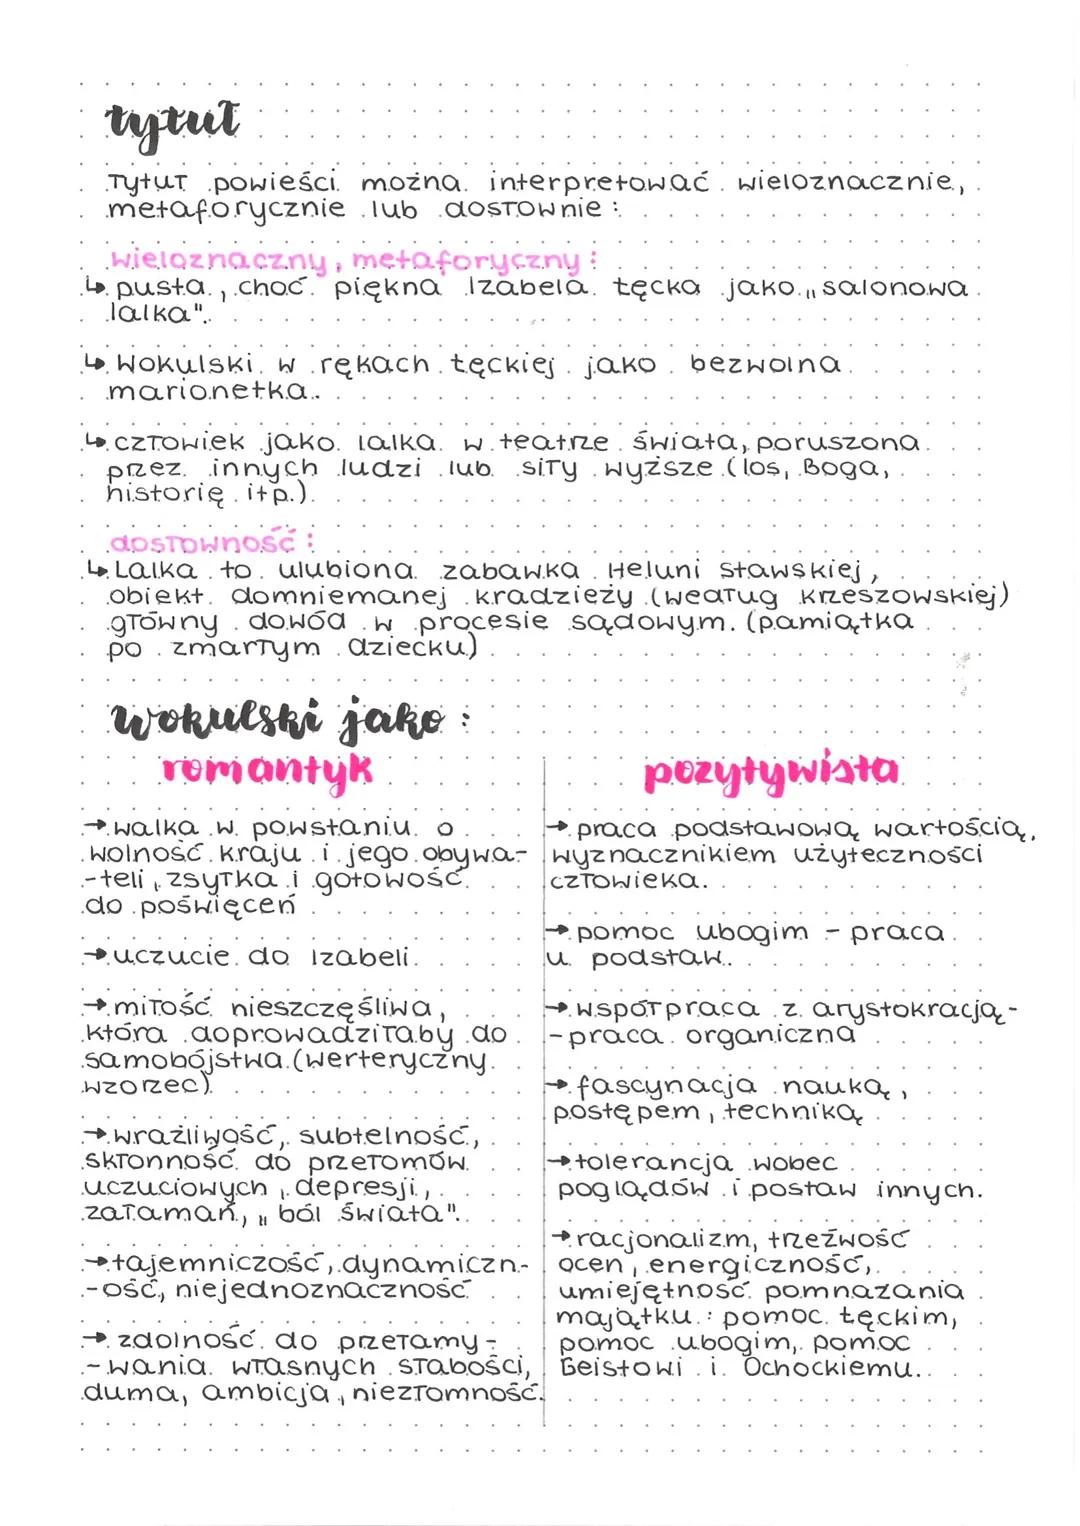 tytuł
Tytuł powieści można interpretować wieloznacznie,
metaforycznie lub dosłownie:
wieloznaczny, metaforyczny:
↳ pusta, choć piękna Izabela Łęcka jako „salonowa
lalka".
↳ Wokulski w rękach Łęckiej jako bezwolna
marionetka.
↳ człowiek jako lalka w teatrze świata, poruszona
przez innych ludzi lub siły wyższe (los, Boga,
historię itp.).
dosłowność:
↳ Lalka to ulubiona zabawka Heluni Stawskiej,
obiekt domniemanej kradzieży (według Krzeszowskiej)
główny dowód w procesie sądowym. (pamiątka
po zmarłym dziecku)
Wokulski jako:
romantyk
→ walka w powstaniu o
wolność kraju i jego obywa-
-teli, zsyłka i gotowość
do poświęceń
→ uczucie do Izabeli
→ miłość nieszczęśliwa,
która doprowadziłaby do
samobójstwa (werteryczny
wzorzec)
→ wrażliwość, subtelność,
skłonność do przełomów
uczuciowych, depresji,
załamań, „ból świata".
→ tajemniczość, dynamiczn-
-ość, niejednoznaczność
→ zdolność do przełamy-
-wania własnych słabości,
duma, ambicja, niezłomność.
pozytywista
→ praca podstawową wartością,
wyznacznikiem użyteczności
człowieka.
→ pomoc ubogim - praca
u podstaw.
→ współpraca z arystokracją-
-praca organiczna
→ fascynacja nauką,
postępem, techniką
→ tolerancja wobec
poglądów i postaw innych.
→ racjonalizm, trzeźwość
ocen, energiczność,
umiejętność pomnażania
majątku: pomoc Łęckim,
pomoc ubogim, pomoc
Geistowi i Ochockiemu.